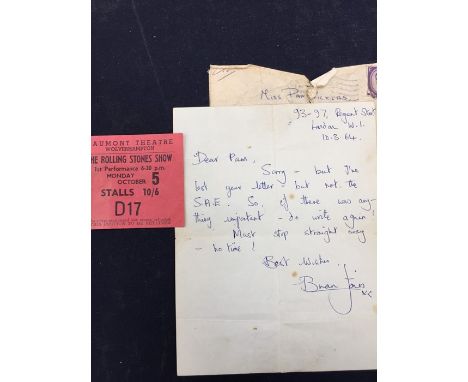 AUMONT THEATRE
WOLVERHAMPTON
HE ROLLING STONES SHOW
1st Performance 6-30 p.m.
MONDAY
OCTOBER 5
STALLS 10/6
D17
MISS PAM
93-97, Regent Street
London W.1.
Dear Pam,
Sorry - but I've
lost your letter - but not the
S.A.E. So, if there was any-
thing important - do write again!
Must stop straight away
- no time!
Best Wishes
Brian Jones